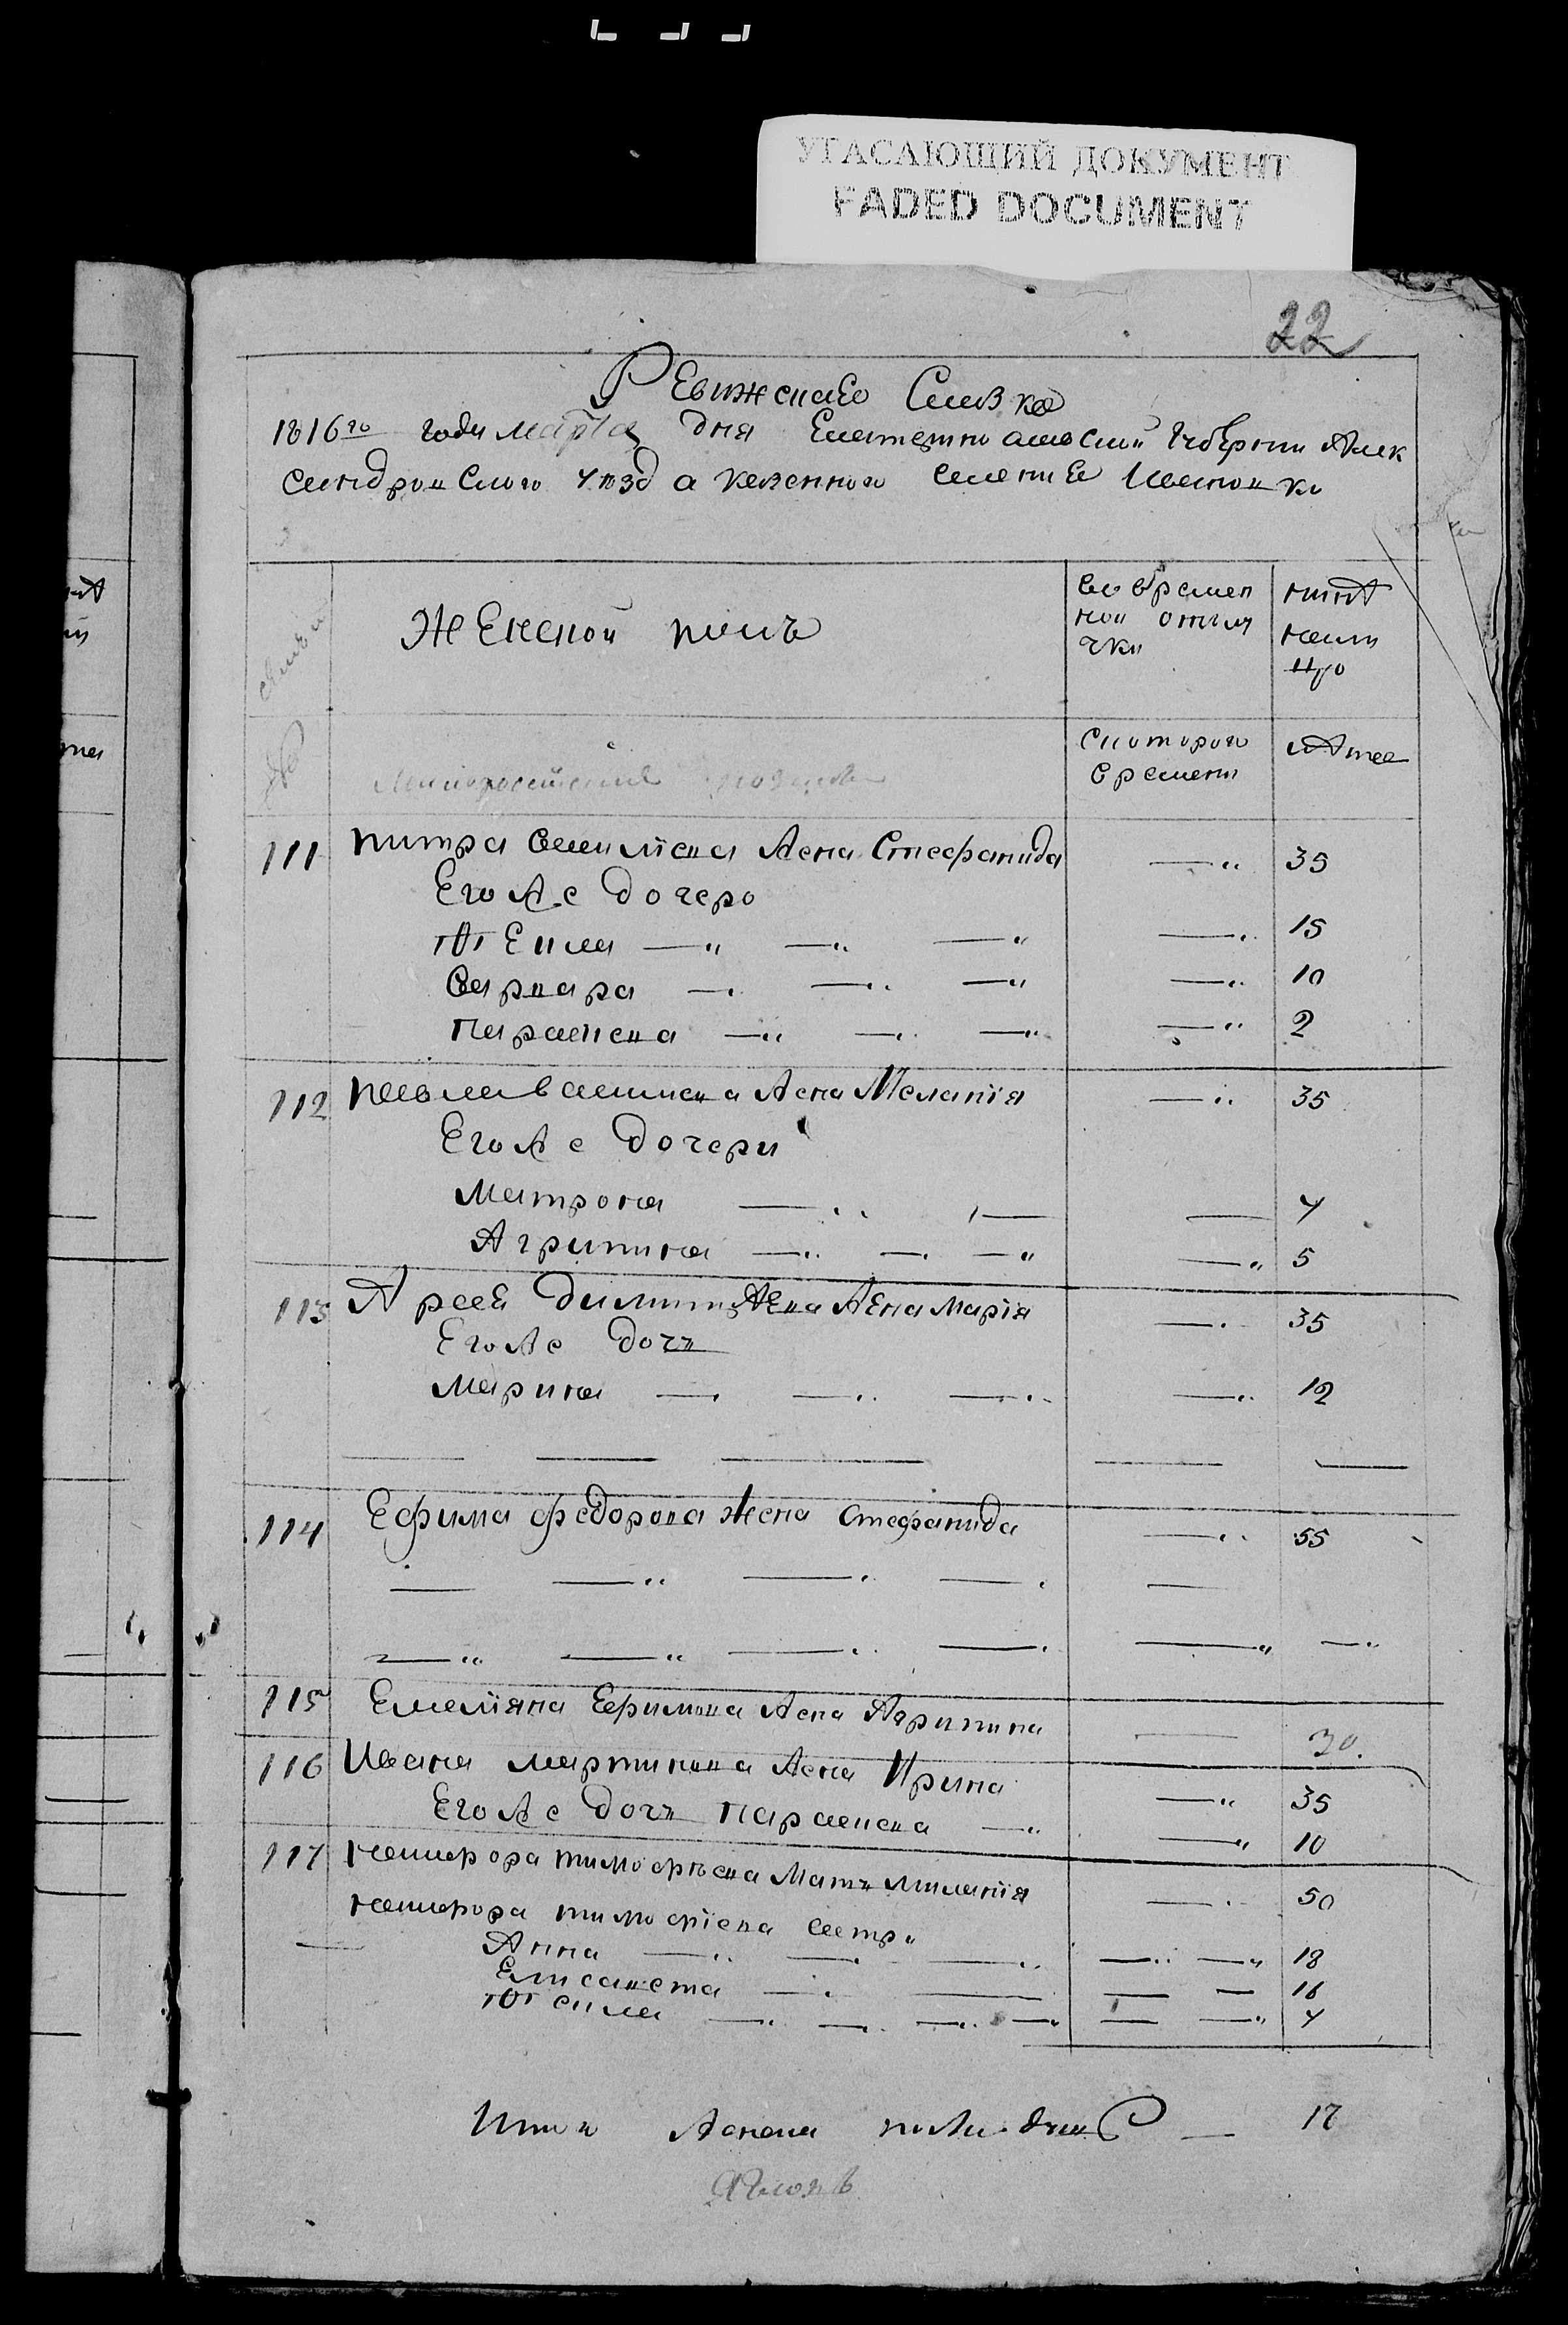 УГАСАЮЩИЙ ДОКУМЕНТ
FADED DOCUMENT
22
Ревижская Сказка
1816го года марта дня Екатеринославской Губернии Алек
сандровского уезда казенного селения Ивановки
семьи
Женской полъ
во времен
ной отлу
чки
ныне
нали
цо
№
Малороссийские
с которого
времени
Лета
111 Петра жена Стефанида — 35
Его же дочери
Текля — 15
Варвара — 10
Параскева — 2
112 Павла жена Меланія — 35
Его же дочери
Матрона — 7
Агрипина — 5
113 жена Марія — 35
Его же дочь
Марина — 12
114 Ефима Федорова жена Стефанида — 55
115 Емеліяна Ефимова жена Агрипина — 30.
116 Ивана Мартинова жена Ирина — 35
Его же дочь Параскева — 10
117 Никифора Тимофѣева мать Миланія — 50
Никифора Тимофіева сестри
Анна — 18
Елисавета — 16
Текля — 7
Итого женска пола душъ — 17